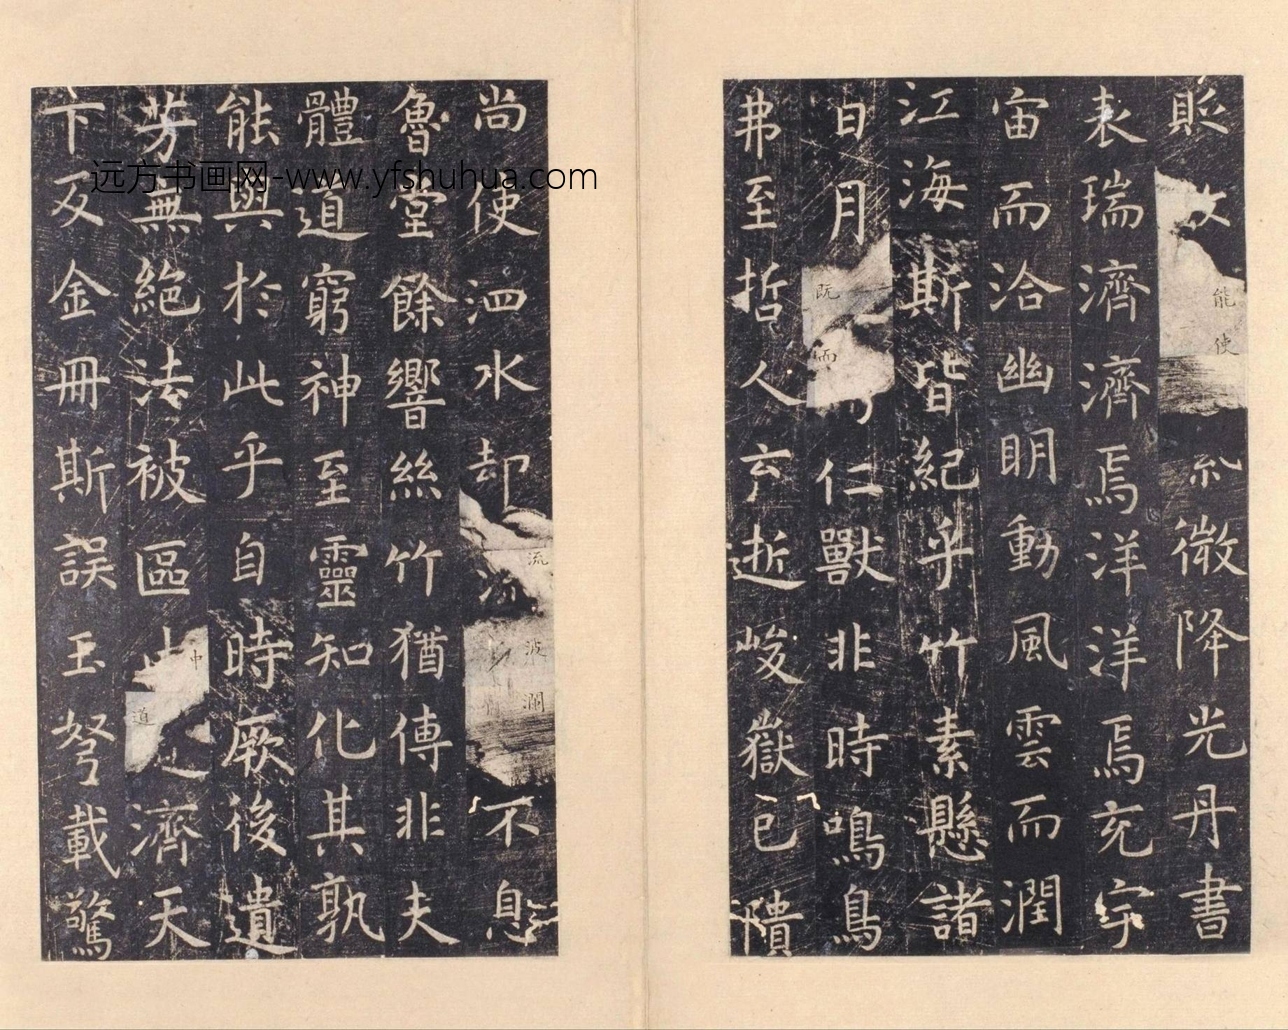 貺故能使紫微降光丹書
表瑞濟濟焉洋洋焉充宇
宙而洽幽明動風雲而潤
江海斯皆紀乎竹素懸諸
日月既而仁獸非時鳴鳥
弗至哲人云逝峻嶽已隤
尚使泗水却流波瀾不息
魯堂餘響絲竹猶傳非夫
體道窮神至靈知化其孰
能與於此乎自時厥後遺
芳無絶法被區中道濟天
下及金冊斯誤玉弩載驚
远方书画网-www.yfshuhua.com